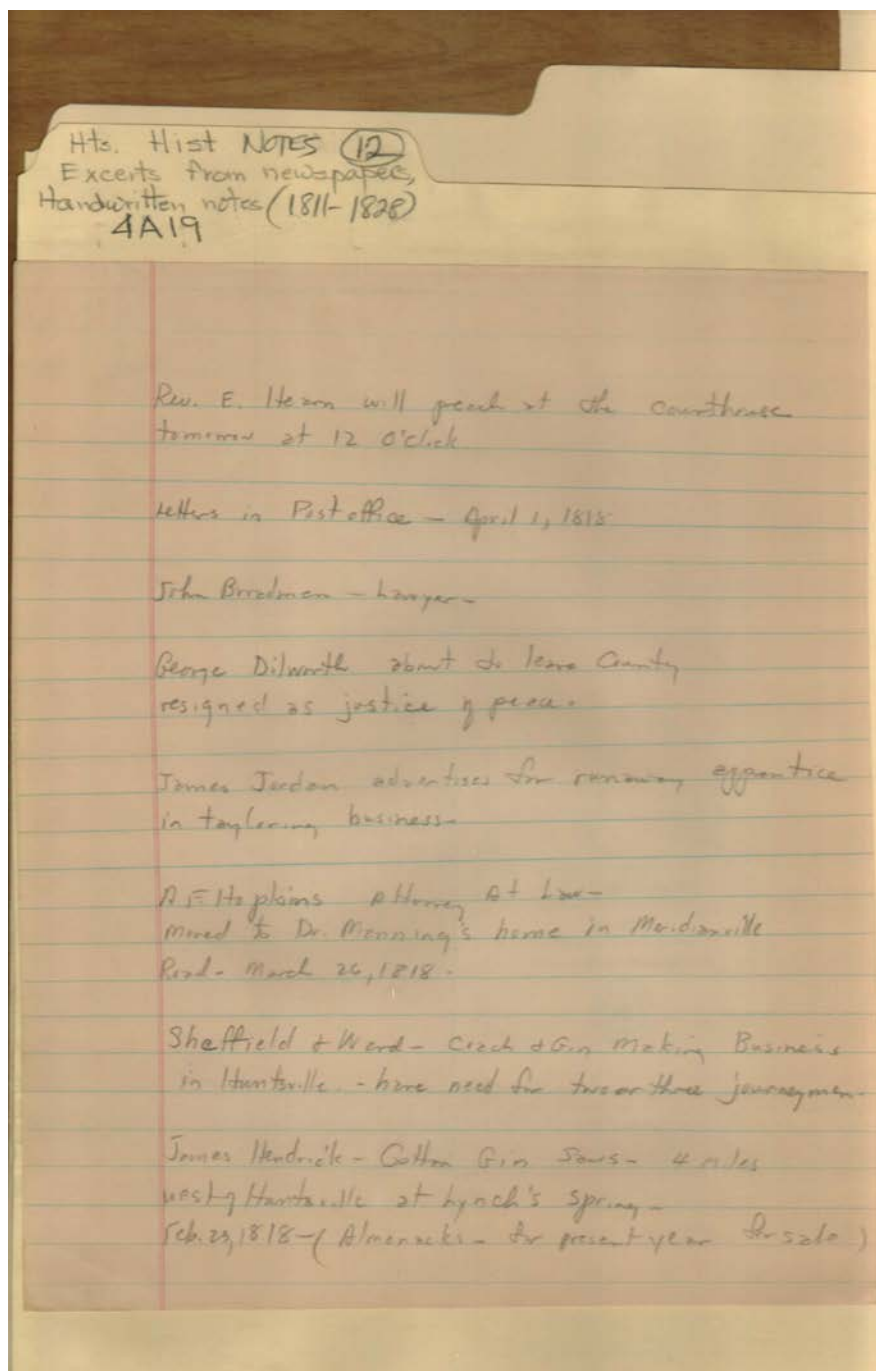 Hts. Hist NOTES (12)
Excerts from newspapers,
Handwritten notes (1811-1828)
4A19
Rev. E. Hearn will preach at the courthouse
tomorrow at 12 o'clock
Letters in Post office - April 1, 1818
John Boardman - Lawyer -
George Dilworth about to leave County
resigned as justice of peace.
James Jordan advertises for runaway apprentice
in tayloring business -
A F Hopkins Attorney At Law -
moved to Dr. Manning's home in Meridianville
Road - March 26, 1818 -
Sheffield & Ward - Coach & Gin Making Business
in Huntsville. - have need for two or three journeymen -
James Hendrick - Cotton Gin Saws - 4 miles
west of Huntsville at Lynch's Spring -
Feb. 23, 1818 - (Almanacks - for present year for sale)